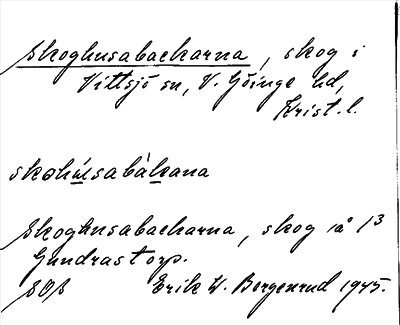 Skoghusabackarna, skog i
Vittsjö sn, V. Göinge hd,
Krist. l.
skohúsabàkana
Skoghusabackarna, skog på 1/3
Gundrastorp.
Erik W. Bergenrud 1945.